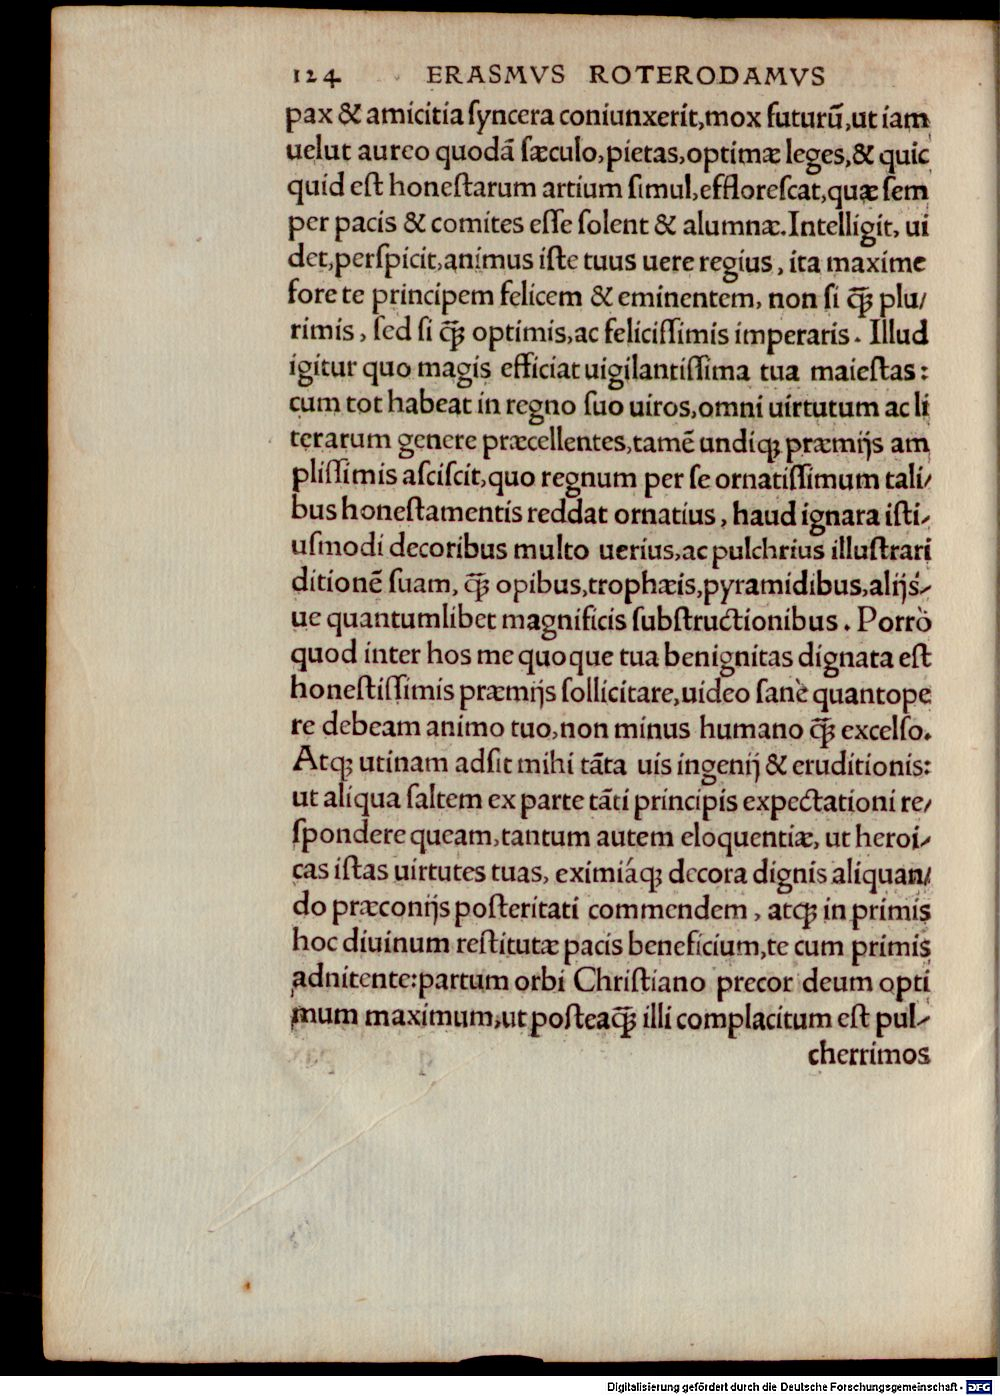 124 ERASMVS ROTERODAMVS
pax & amicitia ſyncera coniunxerit,mox futurū,ut iam
uelut aureo quodā ſæculo,pietas,optimæ leges,& quic
quid eſt honeſtarum artium ſimul,effloreſcat,quæ ſem
per pacis & comites eſſe ſolent & alumnæ.Intelligit, ui
det,perſpicit,animus iſte tuus uere regius, ita maxime
fore te principem felicem & eminentem, non ſi q̃ꝫ plu/
rimis, ſed ſi q̃ꝫ optimis,ac feliciſſimis imperaris. Illud
igitur quo magis efficiat uigilantiſſima tua maieſtas:
cum tot habeat in regno ſuo uiros,omni uirtutum ac li
terarum genere præcellentes,tamē undiqꝫ præmijs am
pliſſimis aſciſcit,quo regnum per ſe ornatiſſimum tali/
bus honeſtamentis reddat ornatius, haud ignara iſti/
uſmodi decoribus multo uerius,ac pulchrius illuſtrari
ditionē ſuam, q̃ꝫ opibus,trophæis,pyramidibus,alijś/
ue quantumlibet magnificis ſubſtructionibus. Porrò
quod inter hos me quoque tua benignitas dignata eſt
honeſtiſſimis præmijs ſollicitare,uideo ſanè quantope
re debeam animo tuo,non minus humano q̃ꝫ excelſo.
Atqꝫ utinam adſit mihi tāta uis ingenij & eruditionis:
ut aliqua ſaltem ex parte tāti principis expectationi re/
ſpondere queam,tantum autem eloquentiæ, ut heroi/
cas iſtas uirtutes tuas, eximiáqꝫ decora dignis aliquan/
do præconijs poſteritati commendem, atqꝫ in primis
hoc diuinum reſtitutæ pacis beneficium,te cum primis
adnitente:partum orbi Chriſtiano precor deum opti
mum maximum,ut poſteaq̃ꝫ illi complacitum eſt pul/
cherrimos
Digitalisierung gefördert durch die Deutsche Forschungsgemeinschaft - DFG